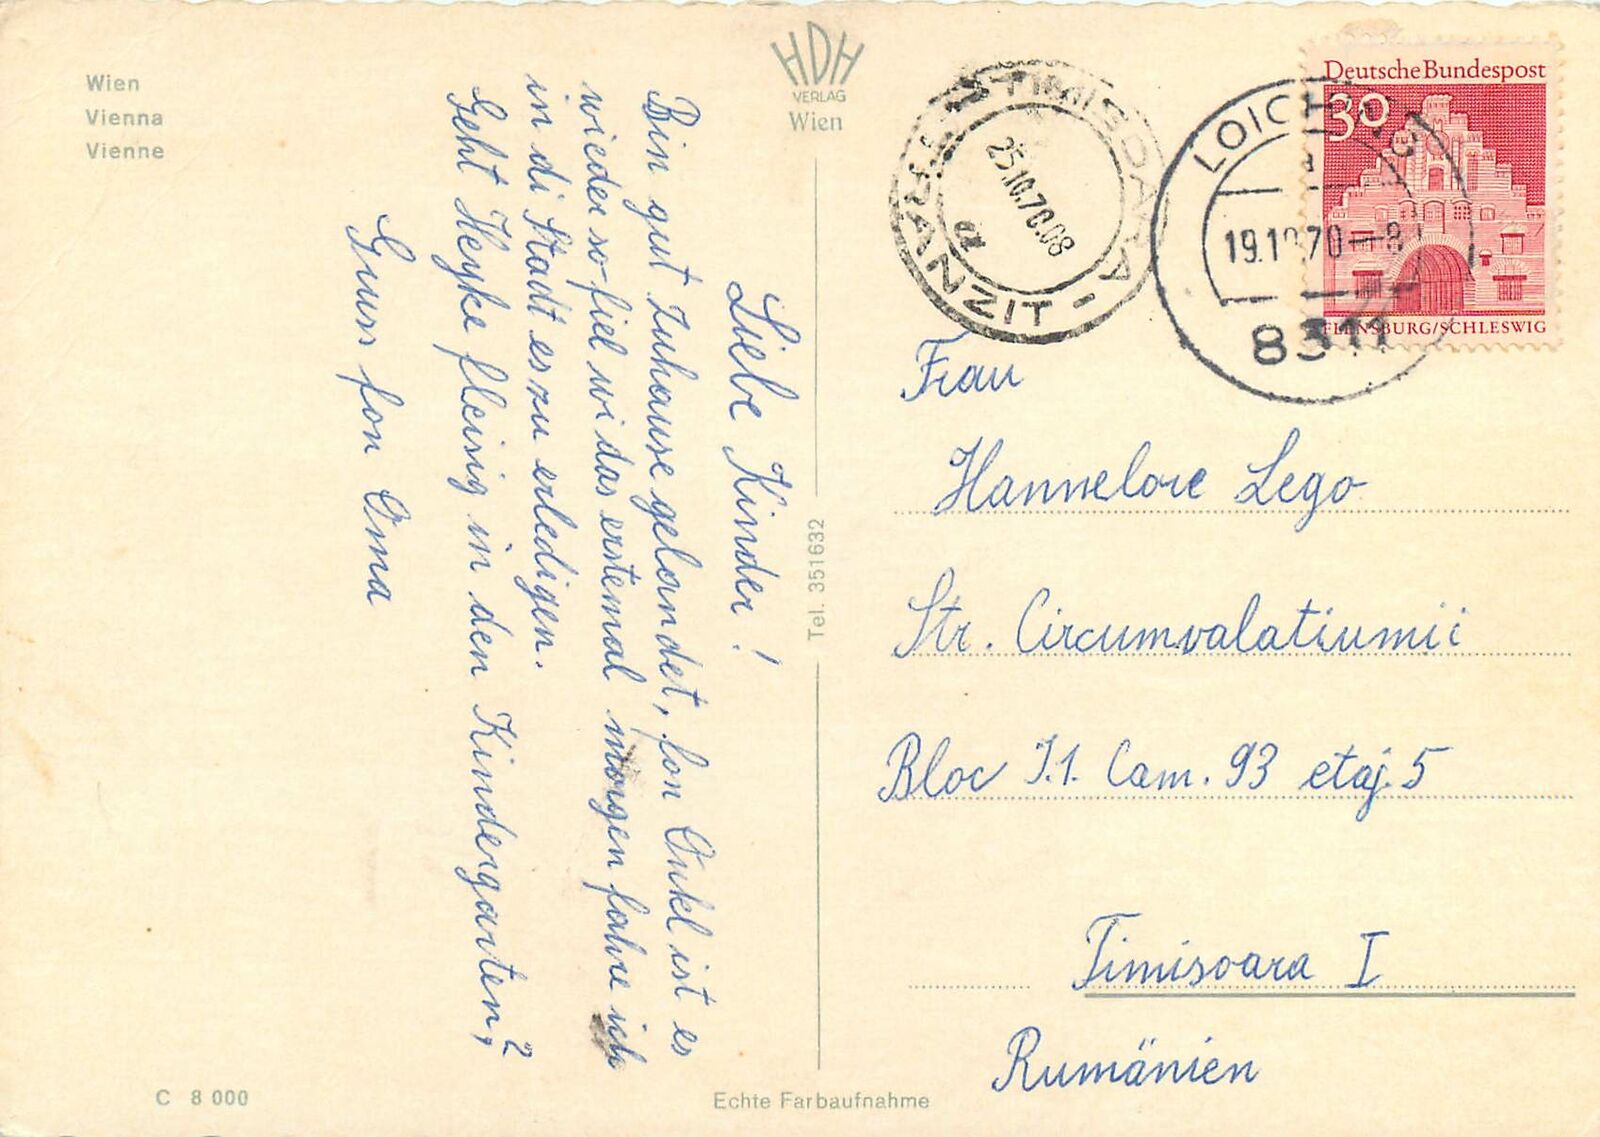 Wien
Vienna
Vienne
HDH
VERLAG
Wien
Liebe Kinder!
Bin gut Zuhause gelandet, fon Onkl ist es
wieder so fiel wi das erstemal morgen fahre ich
in di Stadt es zu erledigen.
Geht Heyke fleisig in den Kindergarten,?
Gruss fon Oma
Tel. 351632
C 8 000
Echte Farbaufnahme
TIMISOARA
TRANZIT
25.10.70.08
a
19.10.70-8
8311
Deutsche Bundespost
30
FLENSBURG/SCHLESWIG
Frau
Hannelore Lego
Str. Circumvalatiumii
Bloc I.1. Cam. 93 etaj. 5
Timisoara I
Rumänien